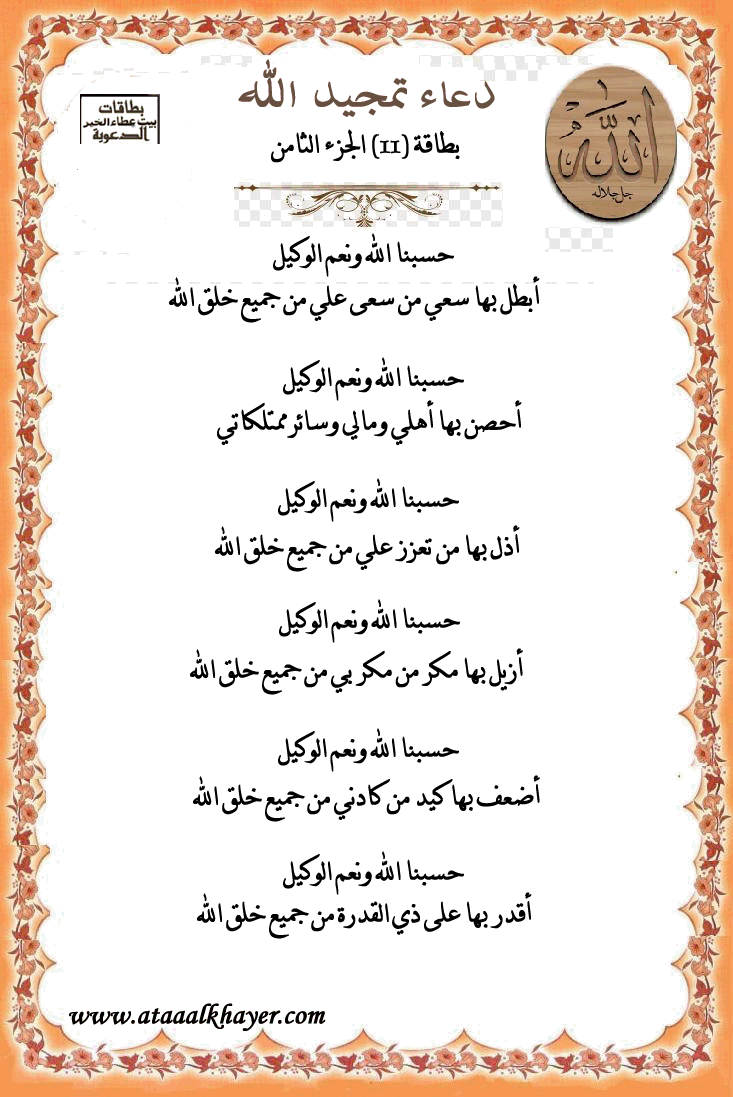 دعاء تمجيد الله
بطاقة (11) الجزء الثامن
بطاقات
بيت عطاء الخير
الدعوية
الله
جل جلاله
حسبنا الله ونعم الوكيل
أبطل بها سعي من سعى علي من جميع خلق الله
حسبنا الله ونعم الوكيل
أحصن بها أهلي ومالي وسائر ممتلكاتي
حسبنا الله ونعم الوكيل
أذل بها من تعزز علي من جميع خلق الله
حسبنا الله ونعم الوكيل
أزيل بها مكر من مكر بي من جميع خلق الله
حسبنا الله ونعم الوكيل
أضعف بها كيد من كادني من جميع خلق الله
حسبنا الله ونعم الوكيل
أقدر بها على ذي القدرة من جميع خلق الله
www.ataaalkhayer.com